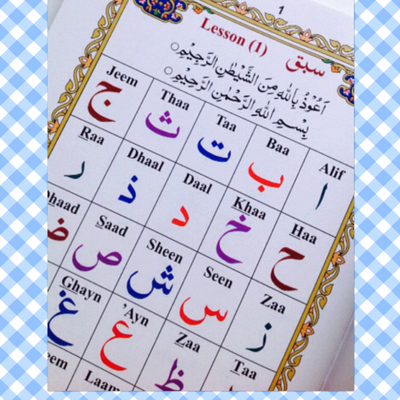 1
Lesson (1) سبق
اَعُوْذُ بِاللّٰهِ مِنَ الشَّيْطٰنِ الرَّجِيْمِ
بِسْمِ اللّٰهِ الرَّحْمٰنِ الرَّحِيْمِ
Alif Baa Taa Thaa Jeem
ا ب ت ث ج
Haa Khaa Daal Dhaal Raa
ح خ د ذ ر
Zaa Seen Sheen Saad
ز س ش ص ض
Taa Zaa 'Ayn Ghayn
ظ ع غ
Laam